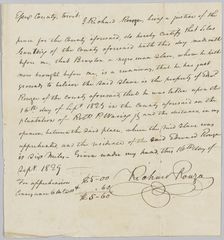 Essex County, Court. I Richard Rouzee, being a justice of the
peace for the County aforesaid, do hereby Certify that
of the County aforesaid with this day made oath
before me, that Brunston a negro man Slave, whom he hath
now brought before me, is a runaway, that he has just
grounds to believe the said Slave is the property of Edward
Rouzee of the County aforesaid, that he was taken upon the
16th day of Sept 1829 in the County aforesaid on the
plantation of Robt P Waring and the distance in my
opinion between the said place, where the said Slave was
apprehended and the residence of the said Edward Rouzee
is Six Miles. Given under my hand, this 16th day of
Sept. 1829
For apprehension $5.00 Richard Rouzee
.60
$5.60